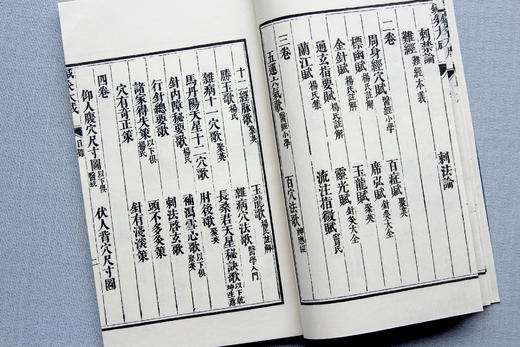 刺禁論 刺法論
難經 難經本義
二卷
周身經穴賦 醫經小學 百症賦 聚英
標幽賦 楊氏註解 席弘賦 針灸大全
金針賦 楊氏註解 玉龍賦 聚英
通玄指要賦 楊氏註解 靈光賦 針灸大全
蘭江賦 楊氏集 流注指微賦 竇氏
三卷
五運六氣歌 醫經小學 百穴法歌 神應經
十二經脈歌 聚英 玉龍歌 楊氏註解
勝玉歌 楊氏 雜病穴法歌 醫學入門
雜病十一穴歌 聚英 長桑君天星秘訣歌 以下乾坤生意
馬丹陽天星十二穴歌 肘後歌 聚英
針內障秘要歌 補瀉雪心歌 以下俱聚英
行針總要歌 刺法啓玄歌
諸家得失策 以下俱楊氏 頭不多灸策
穴有奇正策 針有淺深策
四卷
仰人腹穴尺寸圖 以下俱醫統 伏人背穴尺寸圖